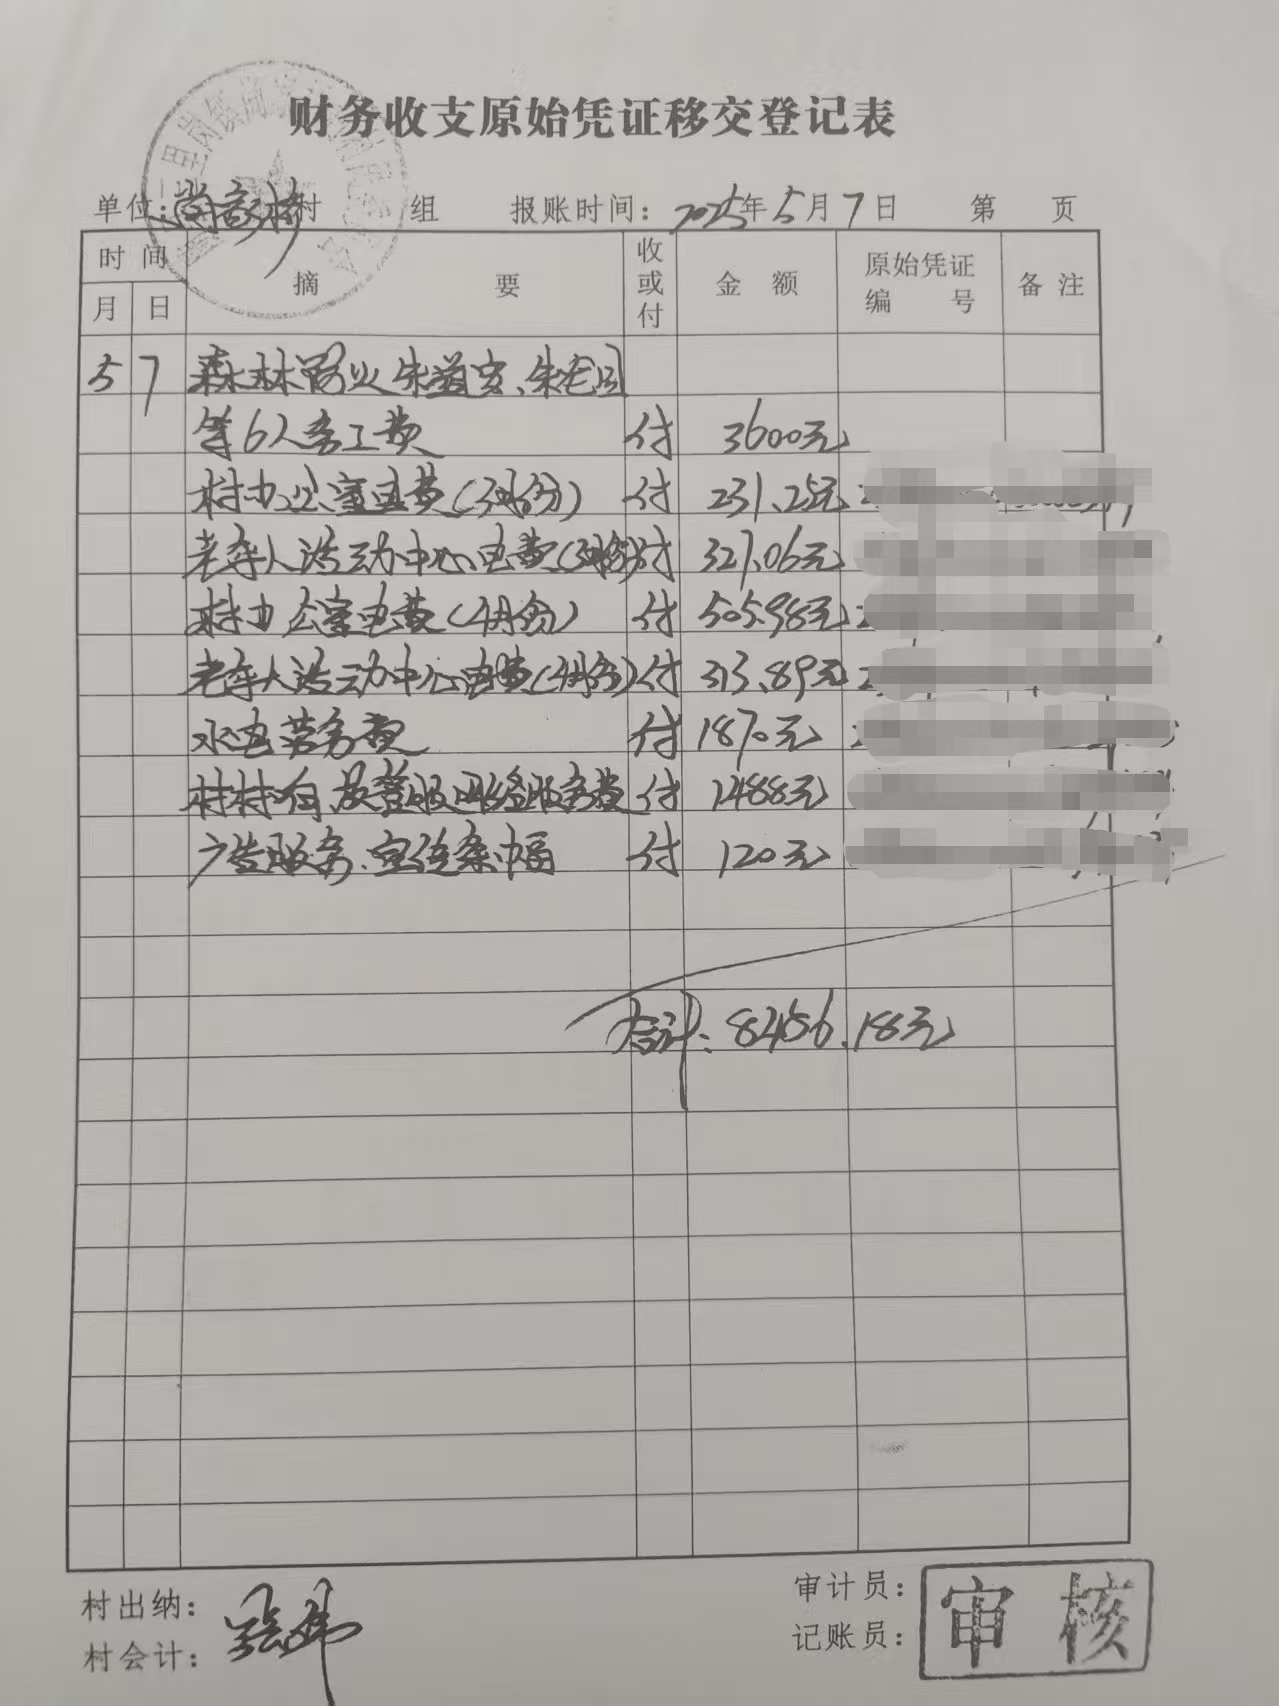 财务收支原始凭证移交登记表
单位：尚家村 村 组 报账时间：2025年5月7日 第 页
时间 摘要 收或付 金额 原始凭证编号 备注
月 日
5 7 森林防火朱益安、朱老四
等6人务工费 付 3600元
村办公室电费(3月份) 付 231.25元
老年人活动中心电费(3月份) 付 327.06元
村办公室电费(4月份) 付 505.98元
老年人活动中心电费(4月份) 付 313.89元
水电劳务费 付 1870元
村村响及警眼网络服务费 付 1488元
广告服务、宣传条幅 付 120元
合计：8456.18元
村出纳：
村会计：
审计员：
记账员：
审核